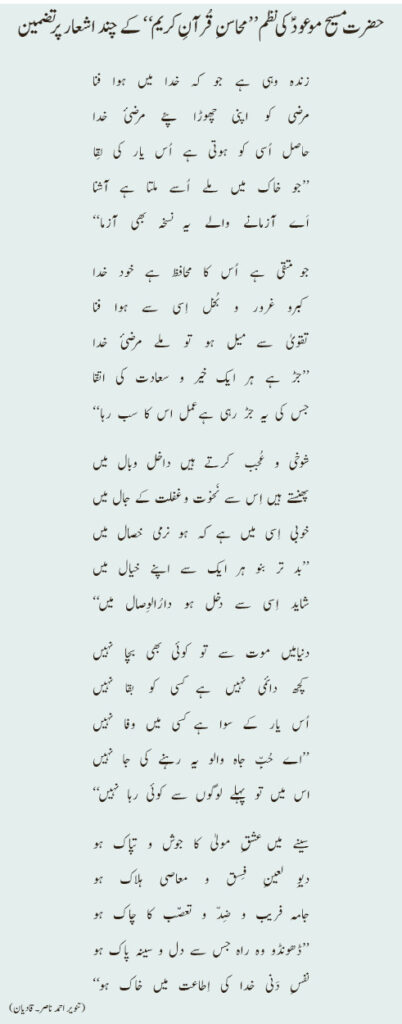 حضرت مسیح موعودؑ کی نظم ’’محاسنِ قُرآنِ کریم‘‘ کے چند اشعار پر تضمین
زندہ وہی ہے جو کہ خدا میں ہوا فنا
مرضی کو اپنی چھوڑا پئے مرضیٔ خدا
حاصل اُسی کو ہوتی ہے اُس یار کی بقا
’’جو خاک میں ملے اُسے ملتا ہے آشنا
اَے آزمانے والے یہ نسخہ بھی آزما‘‘
جو متقی ہے اُس کا محافظ ہے خود خدا
کبرو غرور و بُخل اِسی سے ہوا فنا
تقویٰ سے میل ہو تو ملے مرضیٔ خدا
’’جڑ ہے ہر ایک خیر و سعادت کی اتقا
جس کی یہ جڑ رہی ہے عمل اس کا سب رہا‘‘
شوخی و عُجب کرتے ہیں داخل وبال میں
پھنستے ہیں اِس سے نَخوَت و غفلت کے جال میں
خوبی اِسی میں ہے کہ ہو نرمی خصال میں
’’بد تر بنو ہر ایک سے اپنے خیال میں
شاید اِسی سے دخل ہو دارُالوِصال میں‘‘
دنیامیں موت سے تو کوئی بھی بچا نہیں
کچھ دائمی نہیں ہے کسی کو بقا نہیں
اُس یار کے سوا ہے کسی میں وفا نہیں
’’اے حُبِّ جاہ والو یہ رہنے کی جا نہیں
اس میں تو پہلے لوگوں سے کوئی رہا نہیں‘‘
سینے میں عشقِ مولیٰ کا جوش و تپاک ہو
دیوِ لعینِ فِسق و معاصی ہلاک ہو
جامہ فریب و ضِدّ و تعصّب کا چاک ہو
’’ڈھونڈو وہ راہ جس سے دل و سینہ پاک ہو
نفسِ دَنی خدا کی اِطاعت میں خاک ہو‘‘
(تنویر احمد ناصر۔ قادیان)